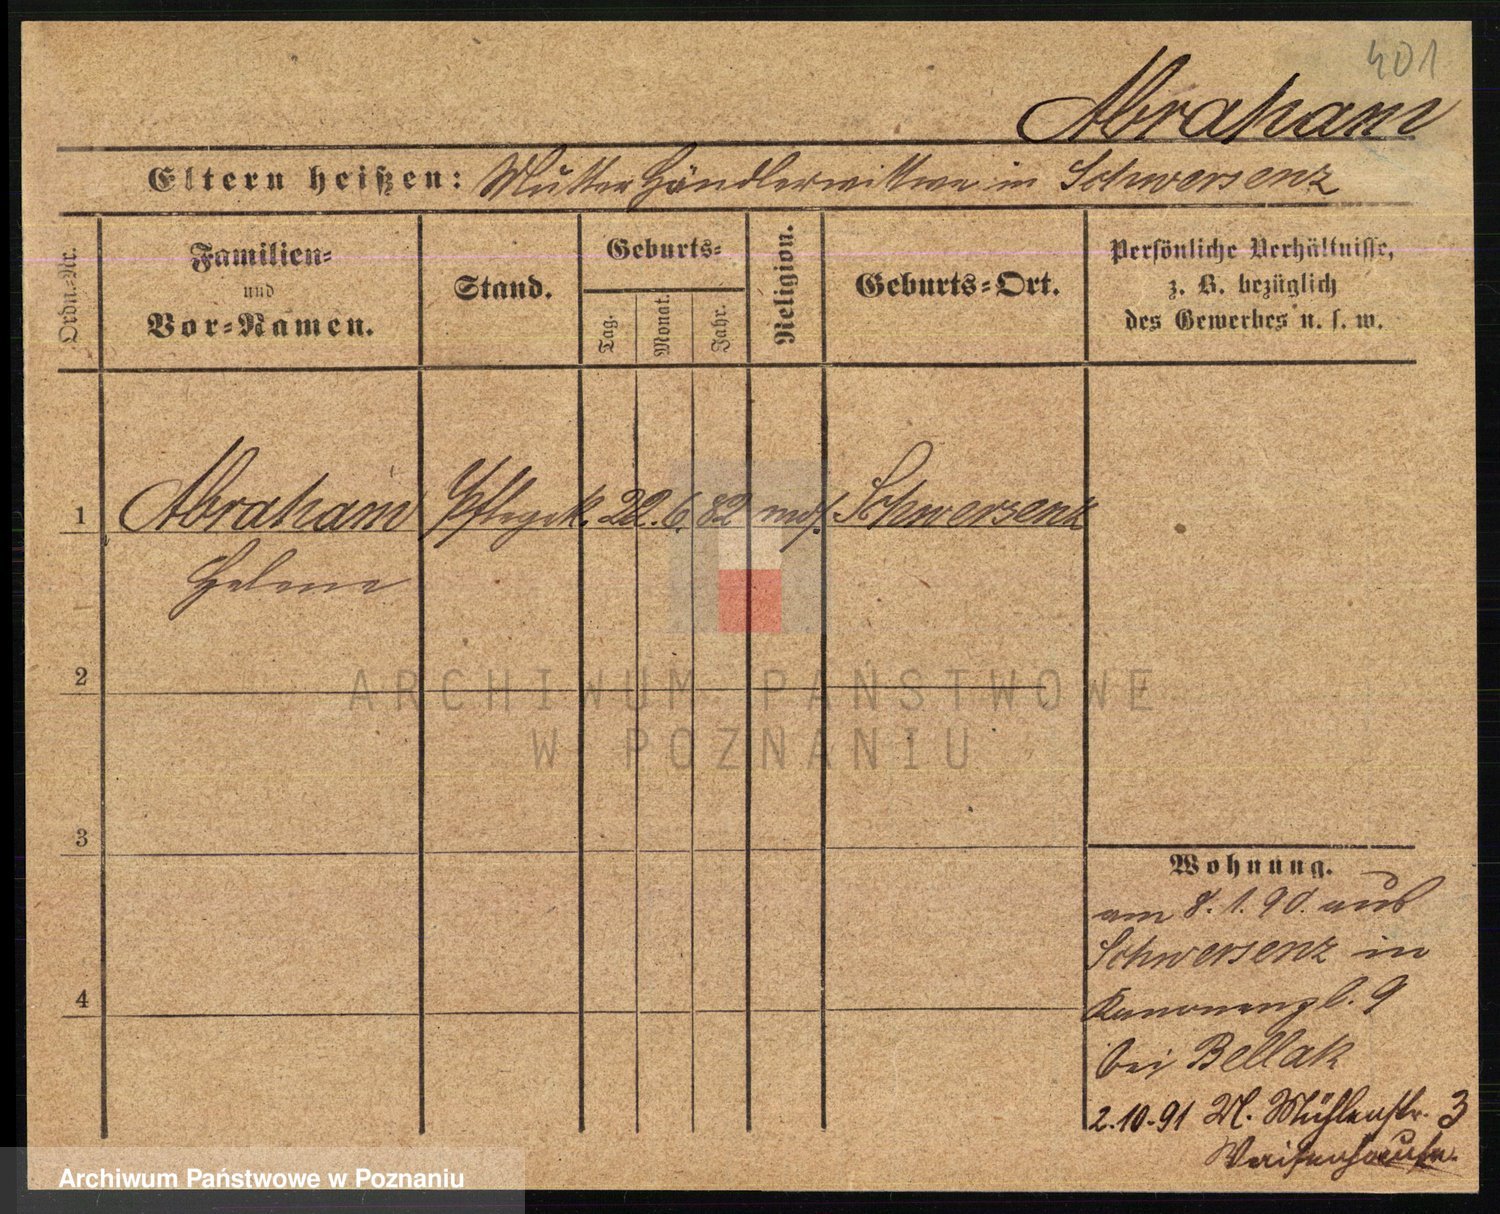 401
Abraham
Eltern heißen: Mutter Händlerwittwe in Schwersenz
Ordn.-Nr.
Familien-
und
Vor-Namen.
Stand.
Geburts-
Tag.
Monat.
Jahr.
Religion.
Geburts-Ort.
Persönliche Verhältnisse,
z. B. bezüglich
des Gewerbes u. s. w.
1 Abraham Pflegek. 22. 6. 82 mos. Schwersenz
Helene
2
3
4
Wohnung.
am 8. 1. 90. aus
Schwersenz in
Kanonenpl. 9
bei Bellak
2.10.91 Kl. Mühlenstr. 3
Waisenhause.
ARCHIWUM PAŃSTWOWE
W POZNANIU
Archiwum Państwowe w Poznaniu